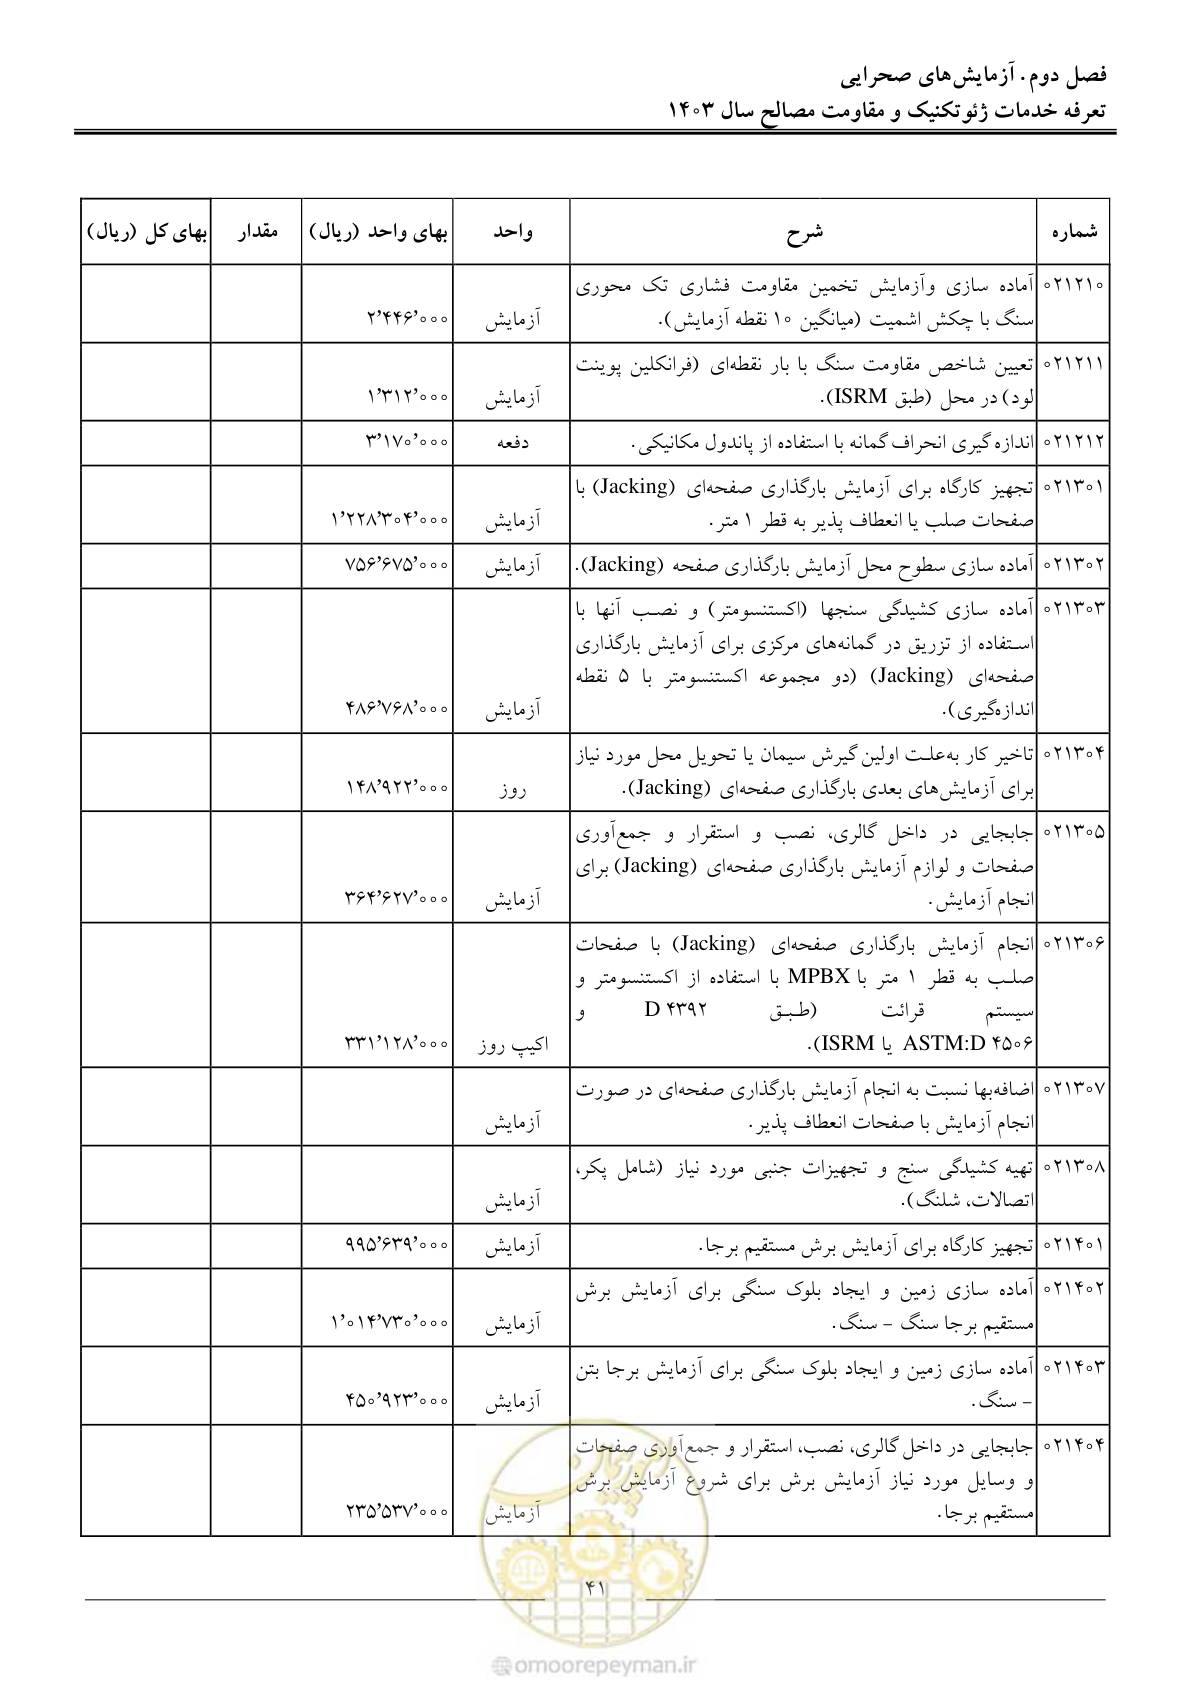 فصل دوم. آزمایش‌های صحرایی
تعرفه خدمات ژئوتکنیک و مقاومت مصالح سال ۱۴۰۳
شماره شرح واحد بهای واحد (ریال) مقدار بهای کل (ریال)
۰۲۱۲۱۰ آماده سازی وآزمایش تخمین مقاومت فشاری تک محوری
سنگ با چکش اشمیت (میانگین ۱۰ نقطه آزمایش). آزمایش ۲٬۴۴۶٬۰۰۰
۰۲۱۲۱۱ تعیین شاخص مقاومت سنگ با بار نقطه‌ای (فرانکلین پوینت
لود) در محل (طبق ISRM). آزمایش ۱٬۳۱۲٬۰۰۰
۰۲۱۲۱۲ اندازه‌گیری انحراف گمانه با استفاده از پاندول مکانیکی. دفعه ۳٬۱۷۰٬۰۰۰
۰۲۱۳۰۱ تجهیز کارگاه برای آزمایش بارگذاری صفحه‌ای (Jacking) با
صفحات صلب یا انعطاف پذیر به قطر ۱ متر. آزمایش ۱٬۲۲۸٬۳۰۴٬۰۰۰
۰۲۱۳۰۲ آماده سازی سطوح محل آزمایش بارگذاری صفحه (Jacking). آزمایش ۷۵۶٬۶۷۵٬۰۰۰
۰۲۱۳۰۳ آماده سازی کشیدگی سنجها (اکستنسومتر) و نصب آنها با
استفاده از تزریق در گمانه‌های مرکزی برای آزمایش بارگذاری
صفحه‌ای (Jacking) (دو مجموعه اکستنسومتر با ۵ نقطه
اندازه‌گیری). آزمایش ۴۸۶٬۷۶۸٬۰۰۰
۰۲۱۳۰۴ تاخیر کار به‌علت اولین‌گیرش سیمان یا تحویل محل مورد نیاز
برای آزمایش‌های بعدی بارگذاری صفحه‌ای (Jacking). روز ۱۴۸٬۹۲۲٬۰۰۰
۰۲۱۳۰۵ جابجایی در داخل گالری، نصب و استقرار و جمع‌آوری
صفحات و لوازم آزمایش بارگذاری صفحه‌ای (Jacking) برای
انجام آزمایش. آزمایش ۳۶۴٬۶۲۷٬۰۰۰
۰۲۱۳۰۶ انجام آزمایش بارگذاری صفحه‌ای (Jacking) با صفحات
صلب به قطر ۱ متر با MPBX با استفاده از اکستنسومتر و
سیستم قرائت (طبق D ۴۳۹۲ و
ASTM:D ۴۵۰۶ یا ISRM). اکیپ روز ۳۳۱٬۱۲۸٬۰۰۰
۰۲۱۳۰۷ اضافه‌بها نسبت به انجام آزمایش بارگذاری صفحه‌ای در صورت
انجام آزمایش با صفحات انعطاف پذیر. آزمایش
۰۲۱۳۰۸ تهیه کشیدگی سنج و تجهیزات جنبی مورد نیاز (شامل پکر،
اتصالات، شلنگ). آزمایش
۰۲۱۴۰۱ تجهیز کارگاه برای آزمایش برش مستقیم برجا. آزمایش ۹۹۵٬۶۳۹٬۰۰۰
۰۲۱۴۰۲ آماده سازی زمین و ایجاد بلوک سنگی برای آزمایش برش
مستقیم برجا سنگ – سنگ. آزمایش ۱٬۰۱۴٬۷۳۰٬۰۰۰
۰۲۱۴۰۳ آماده سازی زمین و ایجاد بلوک سنگی برای آزمایش برجا بتن
– سنگ. آزمایش ۴۵۰٬۹۲۳٬۰۰۰
۰۲۱۴۰۴ جابجایی در داخل گالری، نصب، استقرار و جمع‌آوری صفحات
و وسایل مورد نیاز آزمایش برش برای شروع آزمایش برش
مستقیم برجا. آزمایش ۲۳۵٬۵۳۷٬۰۰۰
امور پیمان
۴۱
@omoorepeyman.ir